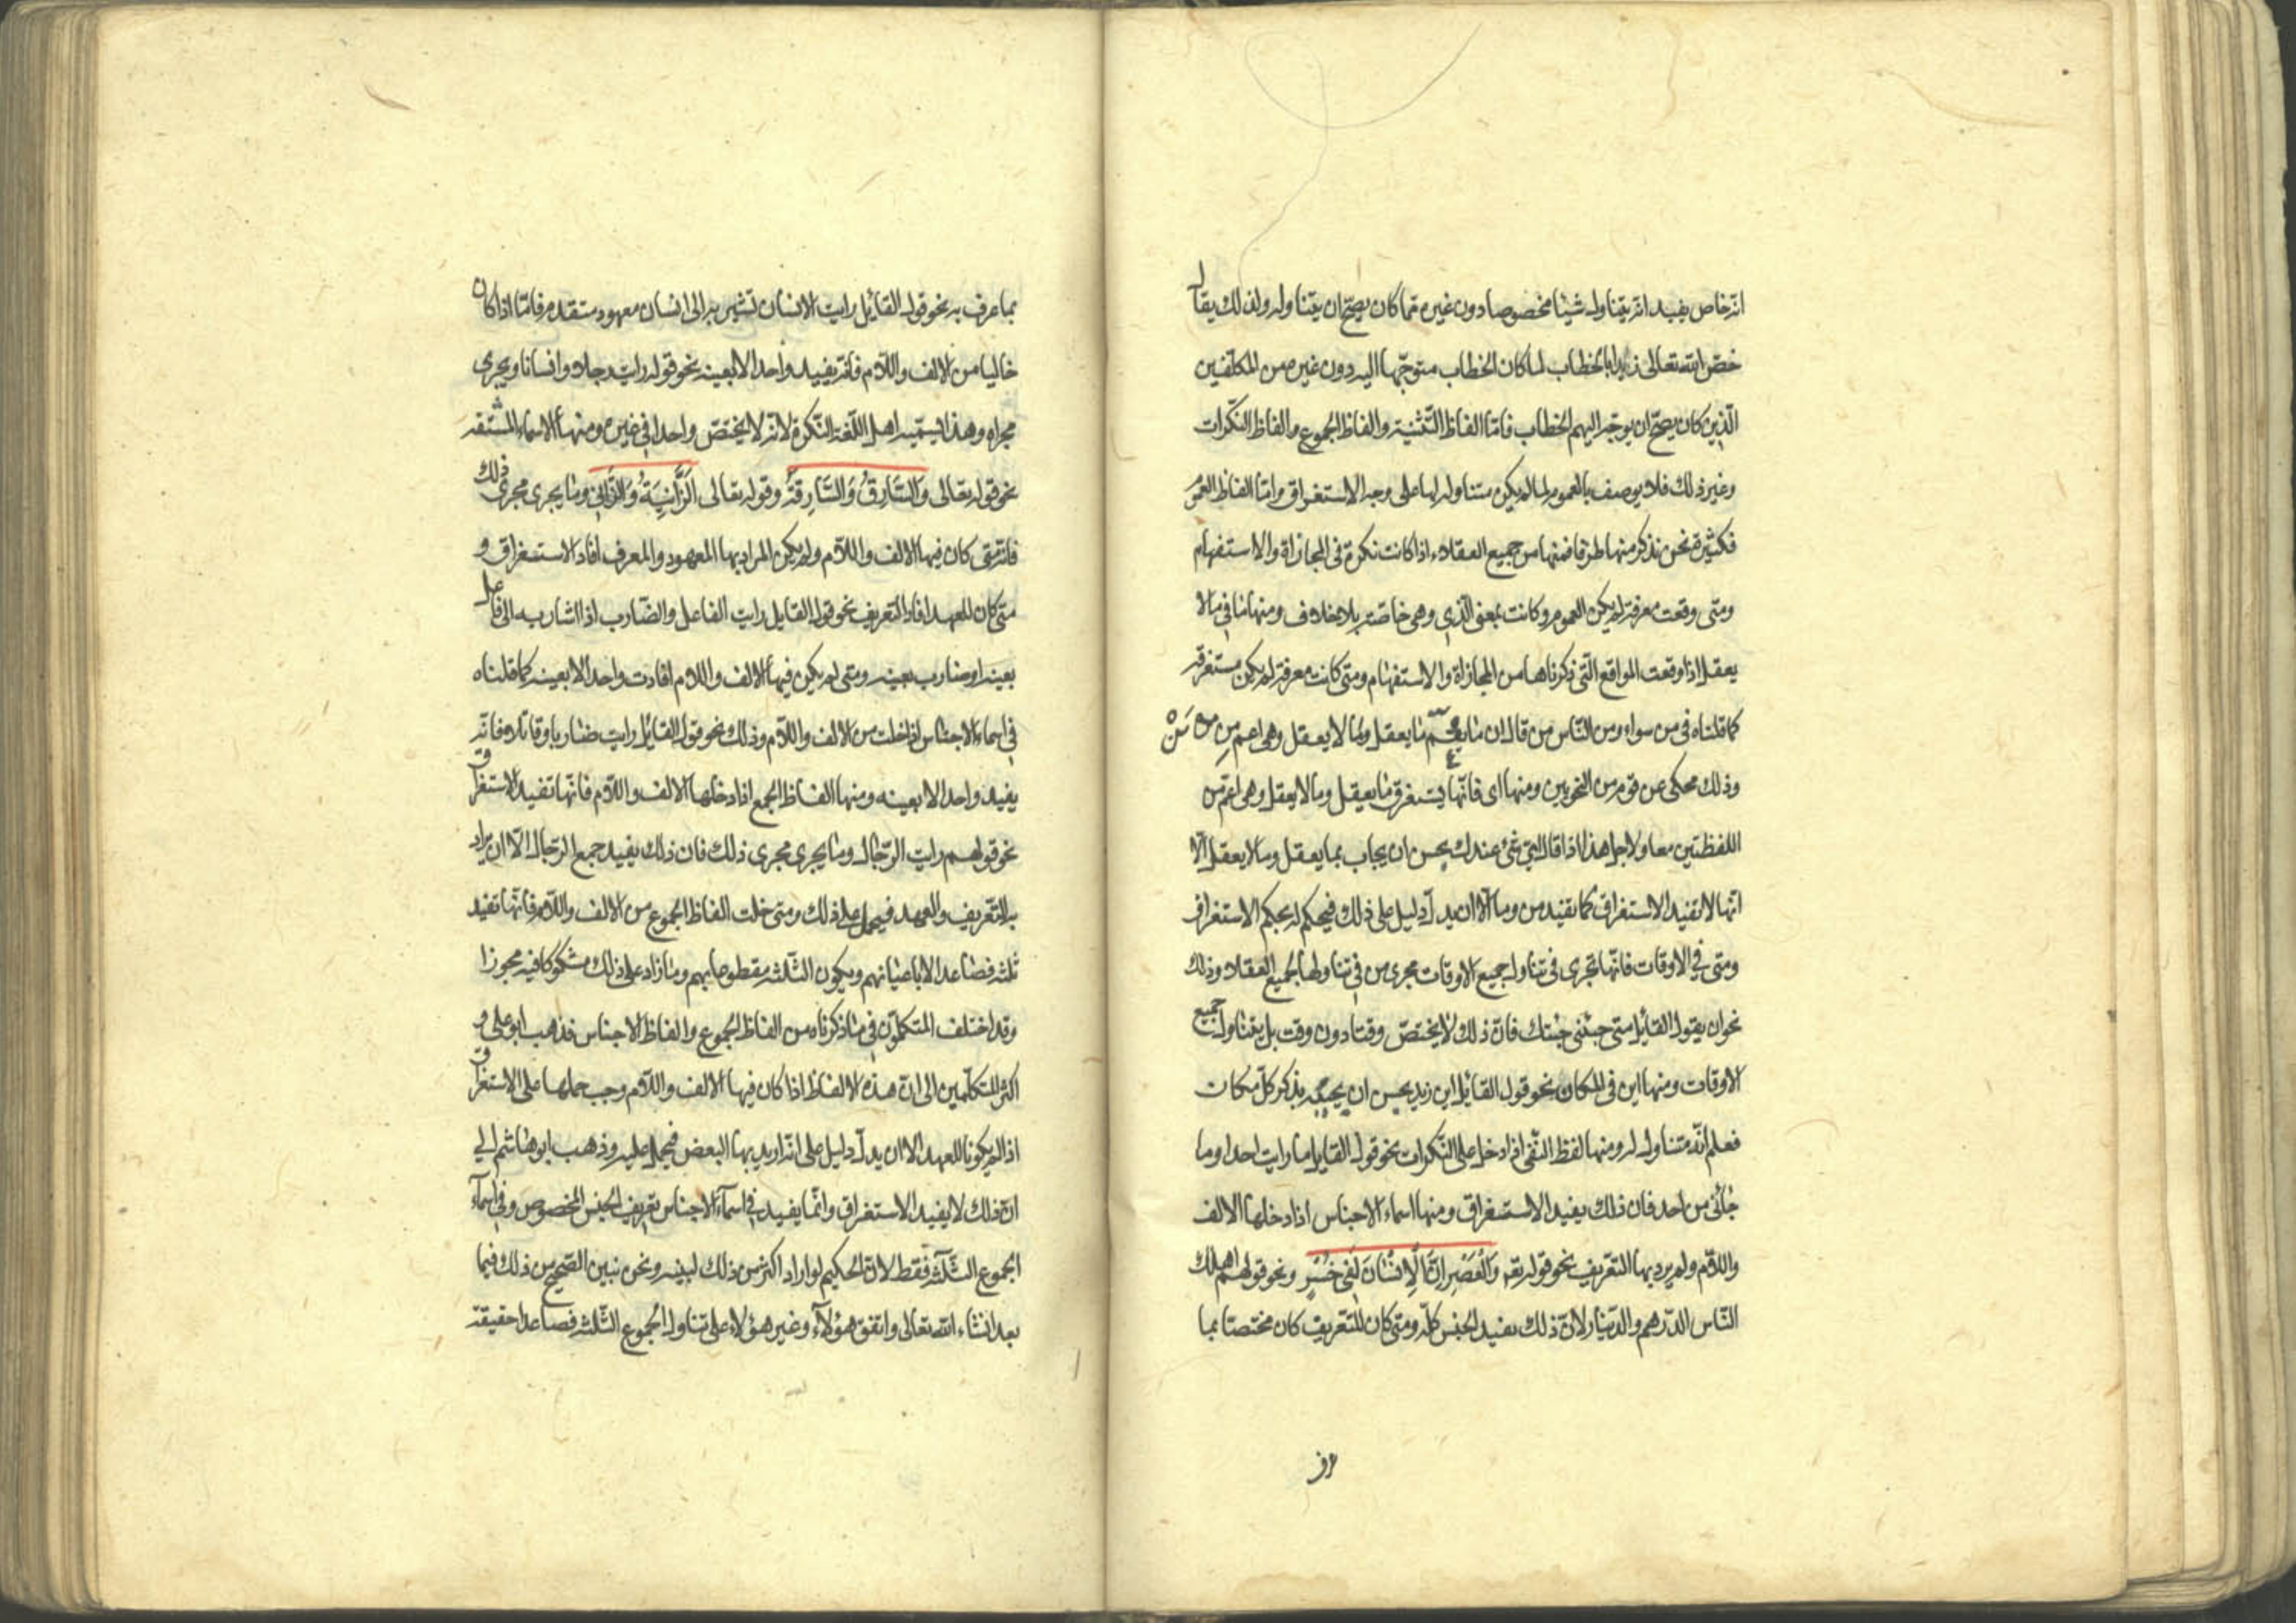 انه خاص يفيد انه يتناول شيئا مخصوصا دون غيره مما كان يصح ان يتناوله ولذلك يقال
خص الله تعالى زيدا بالخطاب لما كان الخطاب متوجها اليه دون غيره من المكلفين
الذين كان يصح ان يوجه اليهم الخطاب فاما الفاظ التثنية والفاظ الجموع والفاظ النكرات
وغير ذلك فلا يوصف بالعموم لما لم يكن متناوله لها على وجه الاستغراق واما الفاظ العموم
فكثيرة نحن نذكر منها طرفا فمنها من جميع العقلاء اذا كانت نكرة في المجازاة والاستفهام
ومتى وقعت معرفة لم يكن العموم وكانت بمعنى الذي وهي خاصة بلا خلاف ومنها ما في ما لا
يعقل اذا وقعت المواقع التي ذكرناها من المجازاة والاستفهام ومتى كانت معرفة لم يكن مستغرقة
كما قلناه في من سواء ومن الناس من قال ان ما يعم ما يعقل ولما لا يعقل وهي اعم من من
وذلك محكى عن قوم من النحويين ومنها اى فانها يستغرق ما يعقل وما لا يعقل وهي اعم من
اللفظتين معا ولاجل هذا اذا قال اي شئ عندك يحسن ان يجاب بما يعقل وما لا يعقل الا
انها لا تفيد الاستغراق كما تفيد من وما الا ان يدل دليل على ذلك فيحكم له بحكم الاستغراق
ومتى في الاوقات فانها تجرى في تناول جميع الاوقات مجرى من في تناولها لجميع العقلاء وذلك
نحو ان يقول القائل متى جئتنى جئتك فان ذلك لا يختص وقتا دون وقت بل يتناول جميع
الاوقات ومنها اين في المكان نحو قول القائل اين زيد يحسن ان يجيبه بذكر كل مكان
فعلم انه متناول له ومنها لفظ النفى اذا دخل على النكرات نحو قول القايل ما رايت احدا وما
جائنى من احد فان ذلك يفيد الاستغراق ومنها اسماء الاجناس اذا دخلها الالف
واللام ولم يرد بها التعريف نحو قوله تعه وَالْعَصْرِ اِنَّ الْاِنْسَانَ لَفِي خُسْرٍ ونحو قولهم اهلك
الناس الدرهم والدينار لان ذلك يفيد الجنس كله ومتى كان للتعريف كان مختصا بما
بما عرف به نحو قول القائل رايت الانسان تشير به الى انسان معهود متقدم فاما اذا كان
خاليا من الالف واللام فانه يفيد واحدا لا بعينه نحو قوله رايت رجلا وانسانا ويجرى
مجراه وهذا يسميه اهل اللغة النكرة لانه لا يختص واحدا في غيره ومنها الاسماء المشتقه
نحو قوله تعالى وَالسَّارِقُ وَالسَّارِقَةُ وقوله تعالى اَلزَّانِيَةُ وَالزَّانِي وما يجرى مجرى ذلك
فانه متى كان فيها الالف واللام ولم يكن المراد بها المعهود والمعرف افاد الاستغراق و
متى كان للعهد افاد التعريف نحو قول القايل رايت الفاعل والضارب اذا اشار به الى فاعل
بعينه او ضارب بعينه ومتى لم يكن فيها الالف واللام افادت واحدا لا بعينه كما قلناه
في اسماء الاجناس اذا خلت من الالف واللام وذلك نحو قول القائل رايت ضاربا وقاتلا فانه
يفيد واحدا لا بعينه ومنها الفاظ الجمع اذا دخلها الالف واللام فانها تفيد الاستغراق
نحو قولهم رايت الرجال وما يجرى مجرى ذلك فان ذلك يفيد جمع الرجال الا ان يراد
به التعريف والعهد فيحمل على ذلك ومتى خلت الفاظ الجموع من الالف واللام فانها تفيد
ثلثه فصاعدا لا باعيانهم ويكون الثلثه مقطوعا بهم وما زاد على ذلك مشكوكا فيه مجوزا
وقد اختلف المتكلمون في ما ذكرناه من الفاظ الجموع والفاظ الاجناس فذهب ابو على و
اكثر المتكلمين الى ان هذه الالفاظ اذا كان فيها الالف واللام وجب حملها على الاستغراق
اذا لم يكونا للعهد الا ان يدل دليل على انه اريد بها البعض فيحمل عليه وذهب ابو هاشم الى
ان ذلك لا يفيد الاستغراق وانما يفيد في اسماء الاجناس تعريف الجنس المخصوص وفي اسماء
الجموع الثلثه فقط لان الحكيم لو اراد اكثر من ذلك لبينه ونحن نبين الصحيح من ذلك فيما
بعد انشاء الله تعالى واتفق هؤلاء وغير هؤلاء على تناول الجموع الثلثه فصاعدا حقيقة